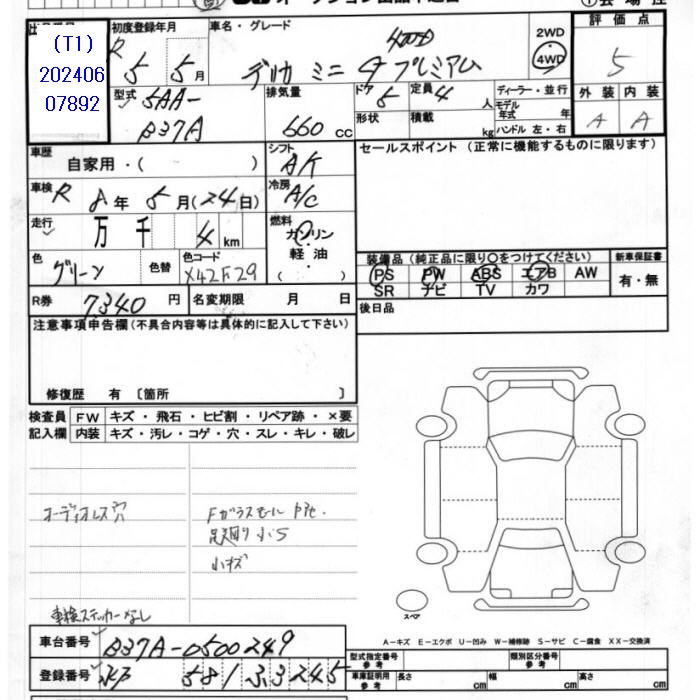 (T1)
202406
07892
初度登録年月
R 5 5月
車名・グレード
4WD
デリカ ミニ プレミアム
2WD
4WD
評価点
5
型式
5AA-
B37A
排気量
660 cc
ドア
5
定員
4 人
形状
積載
kg
ディーラー・並行
モデル年式 年
ハンドル 左・右
外装 内装
A A
車歴
自家用・( )
シフト
冷房
A/C
セールスポイント (正常に機能するものに限ります)
車検
R 8年 5月(24日)
走行
万 千 4 km
燃料
ガソリン
・
軽油
・
( )
色
グリーン
色替
色コード
X42F29
装備品 (純正品に限り○をつけてください)
PS PW ABS エアB AW
SR ナビ TV カワ
新車保証書
有・無
R券 7340 円
名変期限 月 日
後日品
注意事項申告欄(不具合内容等は具体的に記入して下さい)
修復歴 有 〔箇所 〕
検査員
記入欄
FW キズ・飛石・ヒビ割・リペア跡・×要
内装 キズ・汚レ・コゲ・穴・スレ・キレ・破レ
オーディオレス穴
Fガラスモール
足廻り小S
小キズ
車検ステッカーなし
スペア
A-キズ E-エクボ U-凹み W-補修跡 S-サビ C-腐食 XX-交換済
車台番号 B37A-0500249
登録番号 581 33245
型式指定番号
参考
類別区分番号
参考
車庫証明用
参考
長さ cm
幅 cm
高さ cm